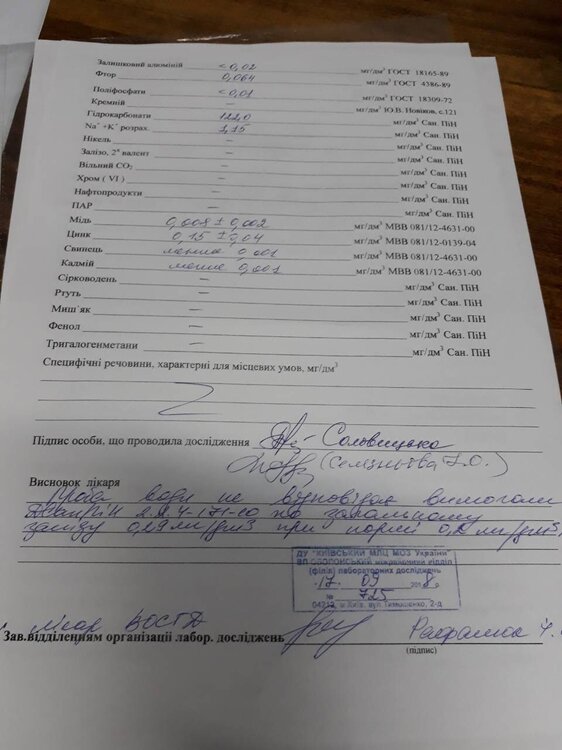 Залишковий алюміній < 0,02 мг/дм³ ГОСТ 18165-89
Фтор 0,064 мг/дм³ ГОСТ 4386-89
Поліфосфати < 0,01 мг/дм³ ГОСТ 18309-72
Кремній — мг/дм³ Ю.В. Новіков, с.121
Гідрокарбонати 122,0 мг/дм³ Сан. ПіН
Na⁺ +K⁺ розрах. 1,15 мг/дм³ Сан. ПіН
Нікель — мг/дм³ Сан. ПіН
Залізо, 2ˣ валент — мг/дм³ Сан. ПіН
Вільний CO₂ — мг/дм³ Сан. ПіН
Хром ( VI ) — мг/дм³ Сан. ПіН
Нафтопродукти — мг/дм³ Сан. ПіН
ПАР — мг/дм³ Сан. ПіН
Мідь 0,008 ± 0,002 мг/дм³ МВВ 081/12-4631-00
Цинк 0,15 ± 0,04 мг/дм³ МВВ 081/12-0139-04
Свинець менше 0,001 мг/дм³ МВВ 081/12-4631-00
Кадмій менше 0,001 мг/дм³ МВВ 081/12-4631-00
Сірководень — мг/дм³ Сан. ПіН
Ртуть — мг/дм³ Сан. ПіН
Миш`як — мг/дм³ Сан. ПіН
Фенол — мг/дм³ Сан. ПіН
Тригалогенметани — мг/дм³ Сан. ПіН
Специфічні речовини, характерні для місцевих умов, мг/дм³
Підпис особи, що проводила дослідження
Висновок лікаря
Проба води не відповідає вимогам
ДСанПіН 2.2.4-171-10 по загальному
залізу 0,29 мг/дм³ при нормі 0,2 мг/дм³
ДУ "КИЇВСЬКИЙ МЛЦ МОЗ України"
ВП ОБОЛОНСЬКИЙ міжрайонний відділ
(філія) лабораторних досліджень
17 09 2018р.
№ 725
04212, м Київ, вул. Тимошенко, 2-д
Зав.відділенням організації лабор. досліджень
(підпис)